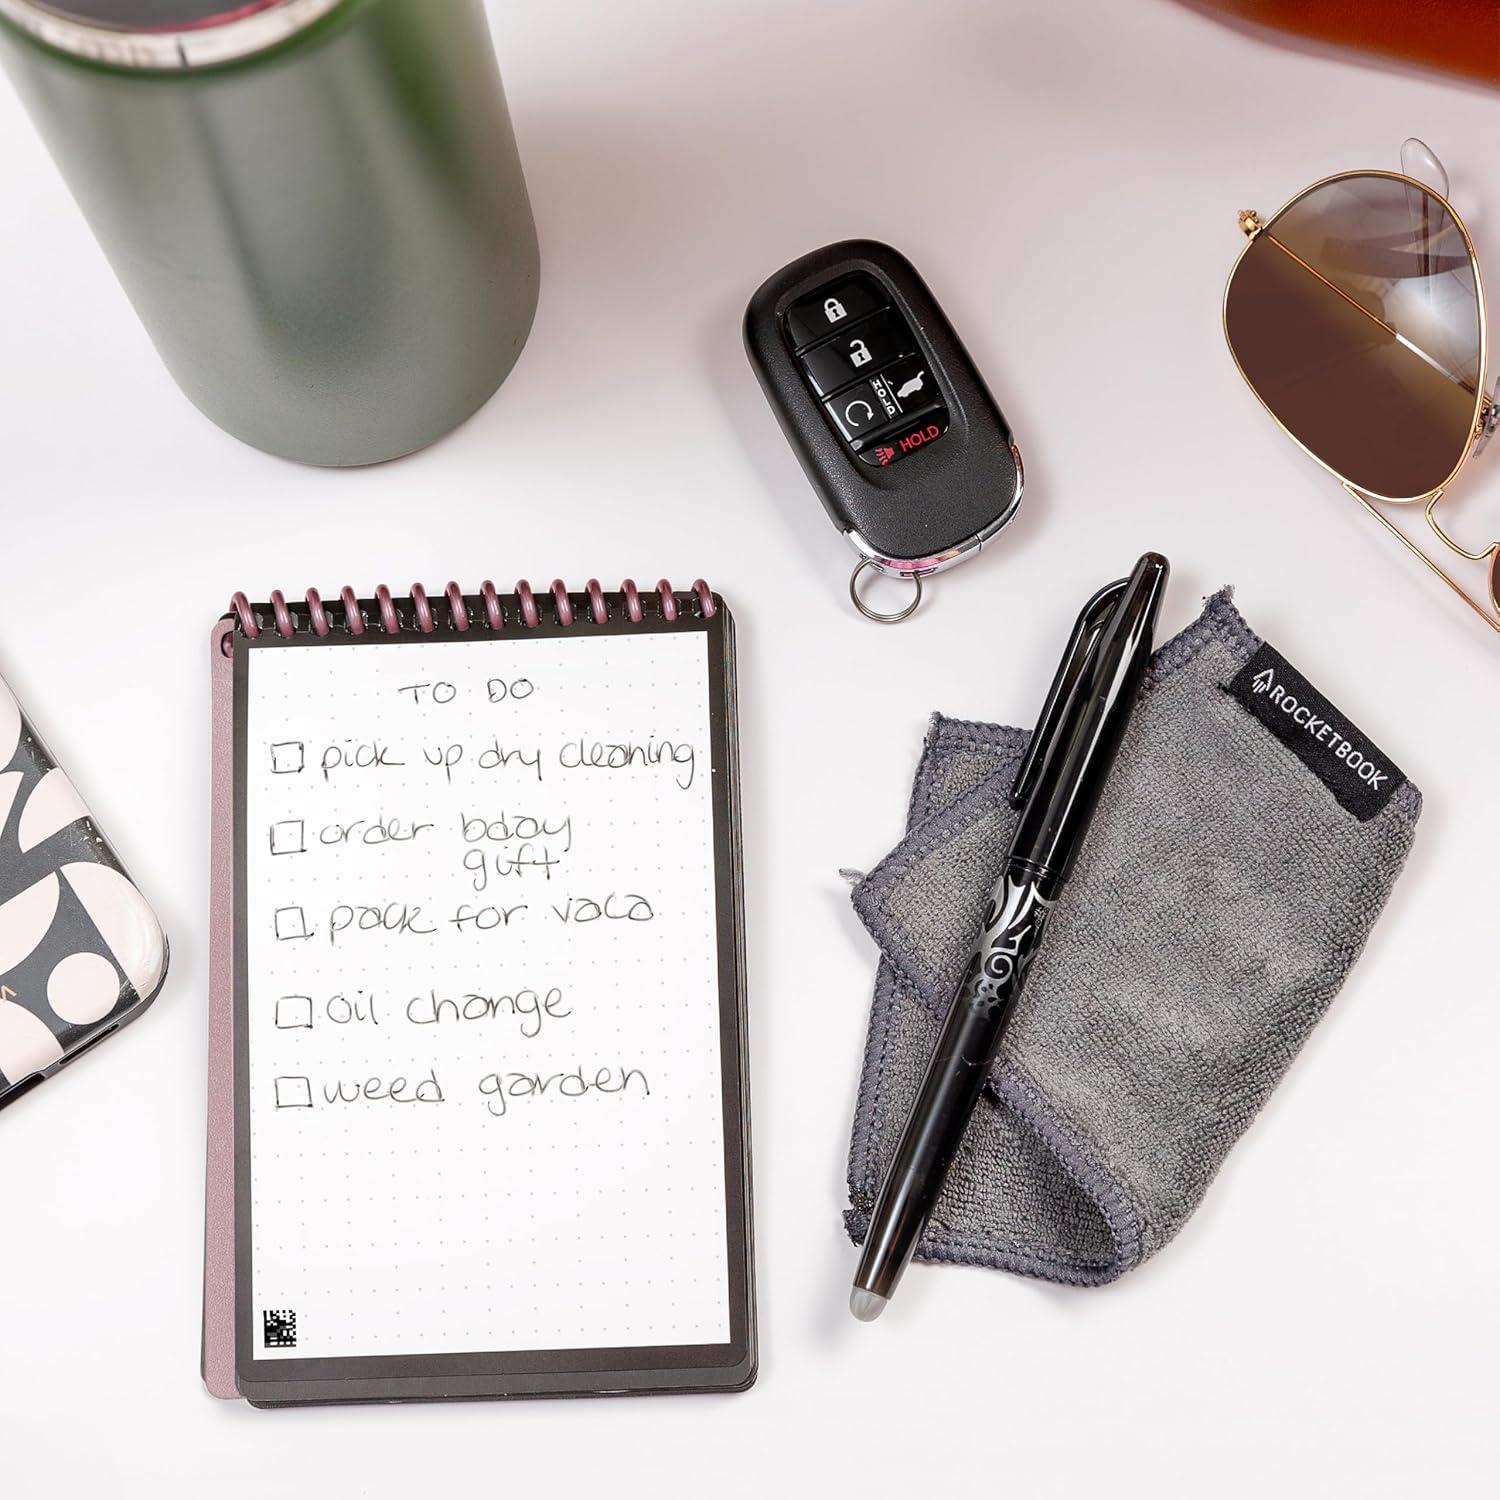 HOLD
HOLD
TO DO
pick up dry cleaning
order bday
gift
pack for vaca
oil change
weed garden
ROCKETBOOK